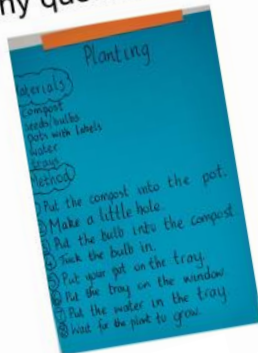 ny que
Planting
Materials
compost
seeds/bulbs
pots with labels
water
trays
Method
① Put the compost into the pot.
② Make a little hole.
③ Put the bulb into the compost
④ Tuck the bulb in.
⑤ Put your pot on the tray.
⑥ Put the tray on the window
⑦ Put the water in the tray.
⑧ Wait for the plant to grow.